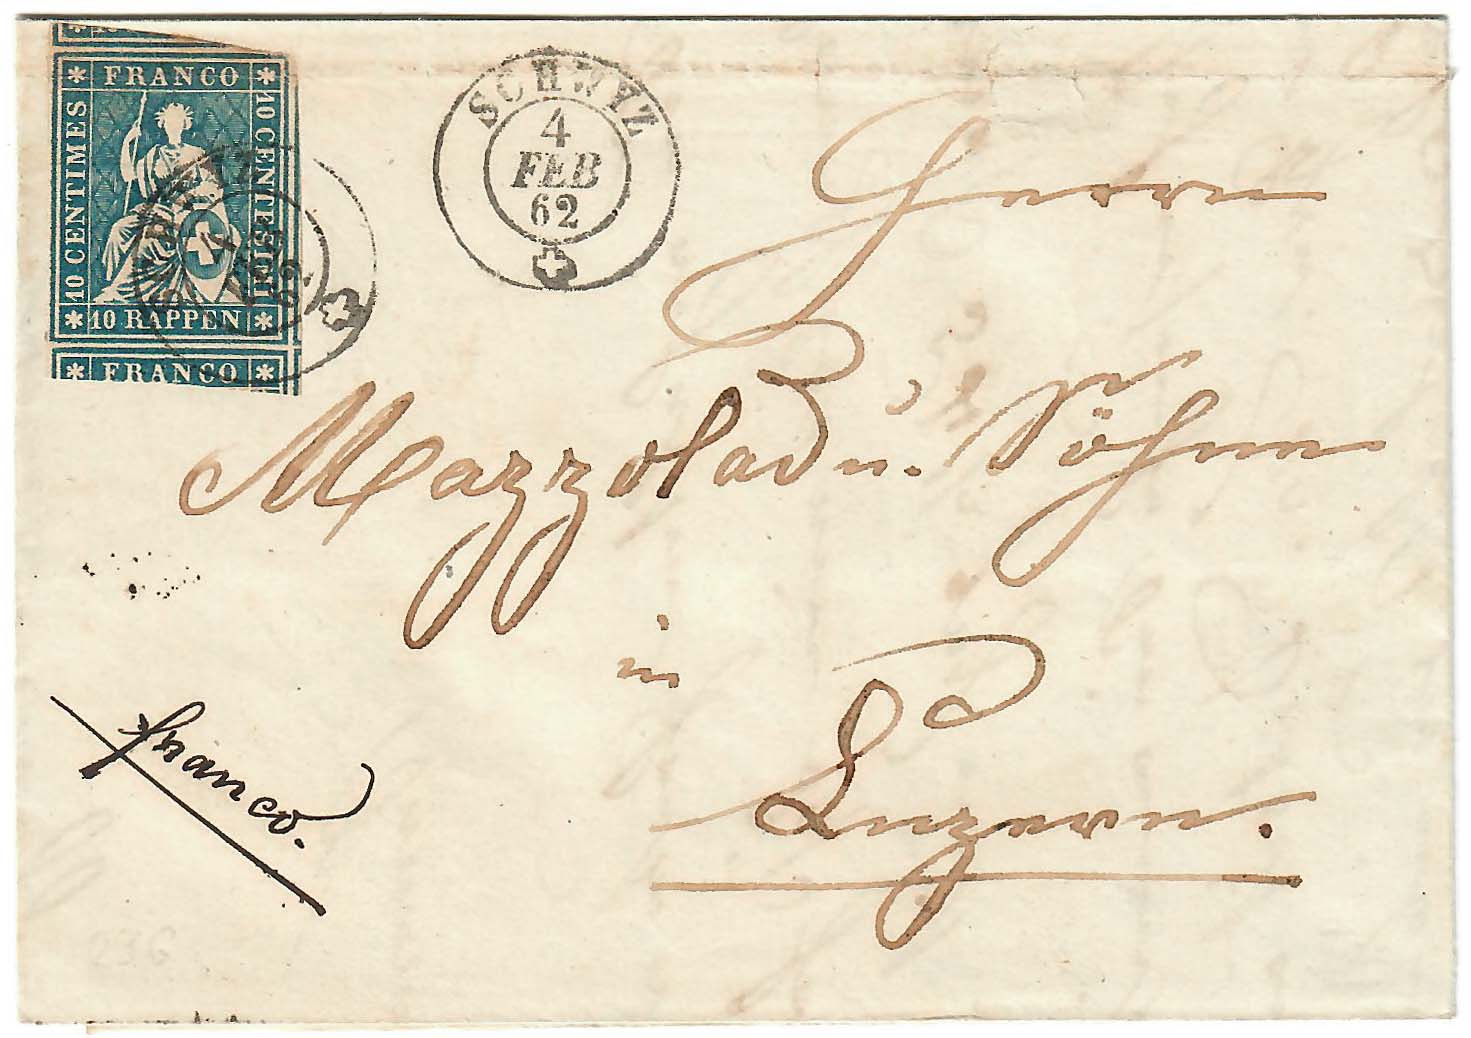 FRANCO
10 CENTIMES
10 CENTESIMI
10 RAPPEN
FRANCO
SCHWYZ
4
FEB
62
SCHWYZ
4
FEB
62
Herrn
Mazzola u. Söhne
in
Luzern.
franco.
23G